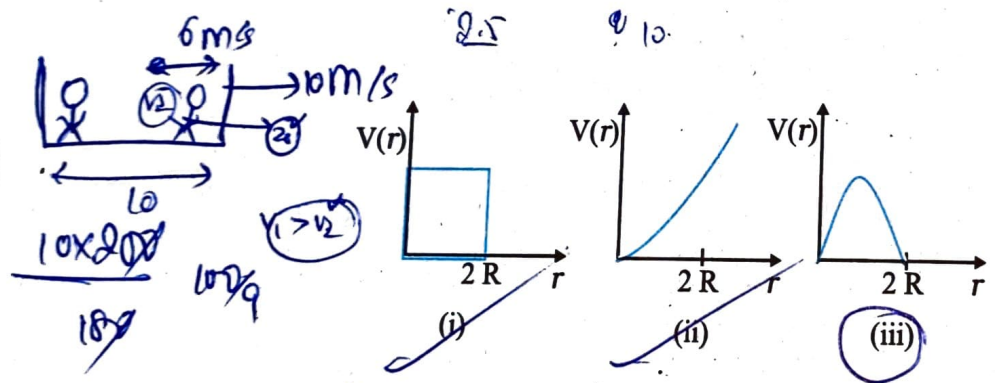 6 m/s
2.5
10.
10 m/s
V2
10
V1 > V2
10×200
180
100/9
V(r)
2 R
r
(i)
V(r)
2 R
r
(ii)
V(r)
2 R
r
(iii)